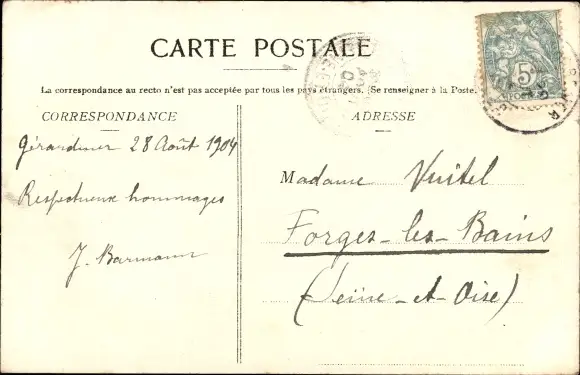 CARTE POSTALE
La correspondance au recto n'est pas acceptée par tous les pays étrangers. (Se renseigner à la Poste.)
CORRESPONDANCE
Gérardmer 28 Août 1904
Respectueux hommages
J. Barmann
ADRESSE
Madame Vuitel
Forges-les-Bains
(Seine-et-Oise)
5